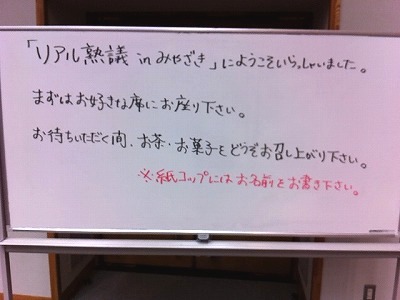 「リアル熟議 in みやざき」にようこそいらっしゃいました。
まずはお好きな席にお座り下さい。
お待ちいただく間、お茶・お菓子をどうぞお召し上がり下さい。
※紙コップにはお名前をお書き下さい。